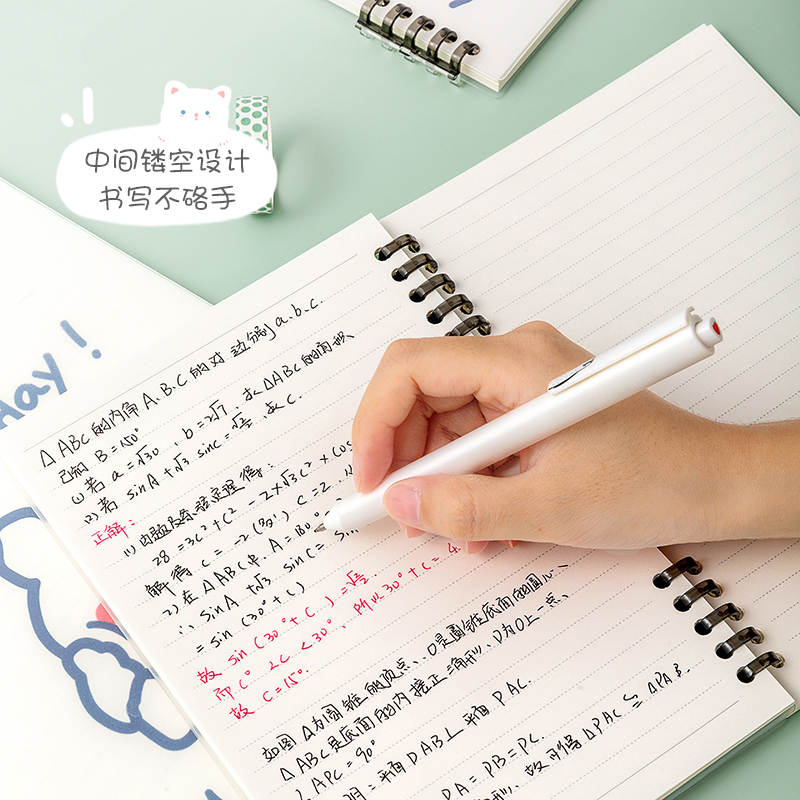 中间镂空设计
书写不硌手
day!
△ABC的内角A.B.C的对边分别a.b.c.
已知 B=150°
(1)若 a=√30 , b=2√7, 求△ABC的面积
(2)若 sinA+√3 sinC=√2/2, 求C.
正解:
(1)由题及余弦定理得:
28=3c²+c²-2×√3c²×cos
解得 c=-2(舍), c=2.
(2)在△ABC中, A=180°
∴ sinA+√3 sinC= sin
=sin(30°+C)
故 sin(30°+C)=√2/2
而 C°<C<30°, 所以30°+C=4
故 C=15°.
如图 △为圆锥的顶点、O是圆锥底面的圆心、
△ABC是底面的内接正三角形、P为O上一点、
∠APC=90°
明:平面PAB⊥平面PAC.
DA=DB=DC.
故可得△PAC≌△PAB.